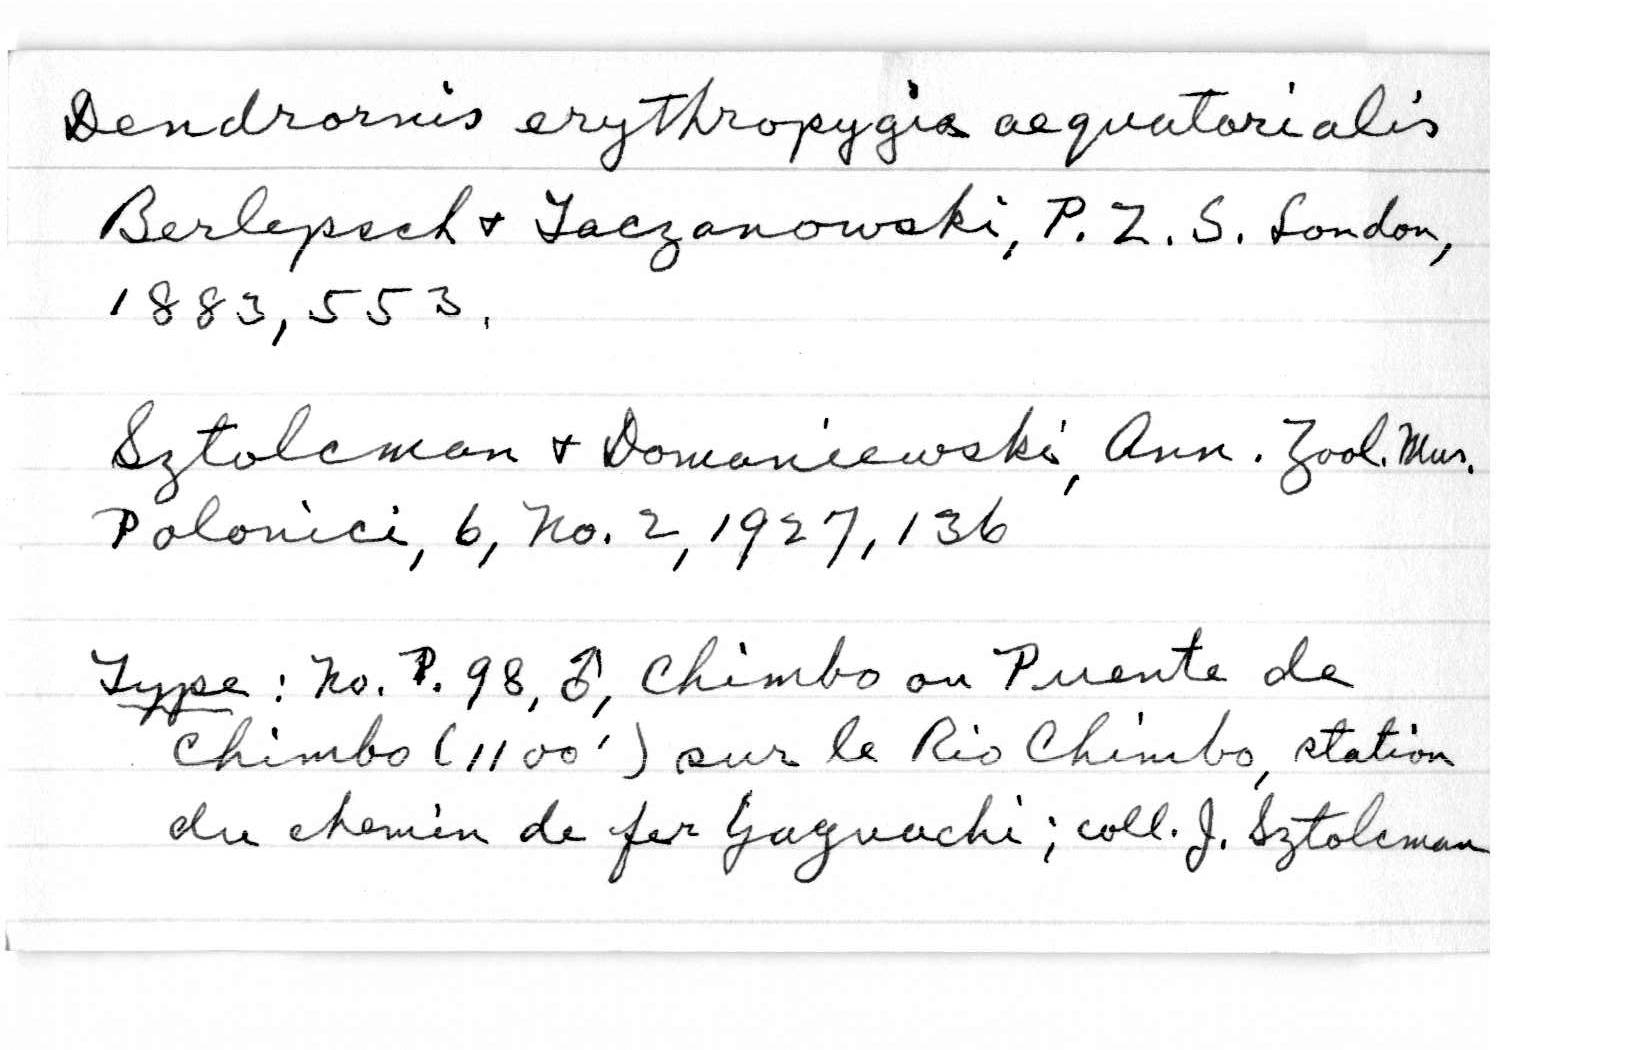 Dendrornis erythropygia aequatorialis
Berlepsch & Taczanowski, P. Z. S. London,
1883, 553.
Sztolcman & Domaniewski, Ann. Zool. Mus.
Polonici, 6, No. 2, 1927, 136
Type: No. P. 98, ♂, Chimbo ou Puente de
Chimbo (1100') sur le Rio Chimbo, station
du chemin de fer Yaguachi; coll. J. Sztolcman